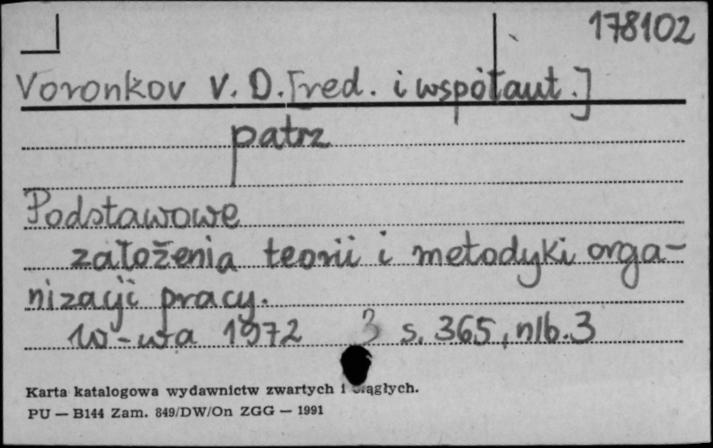 178102
Voronkov V. D. [red. i współaut.]
patrz
Podstawowe
założenia teorii i metodyki orga-
nizacji pracy.
W-wa 1972 3 s. 365, nlb. 3
Karta katalogowa wydawnictw zwartych i ciągłych.
PU — B144 Zam. 849/DW/On ZGG — 1991